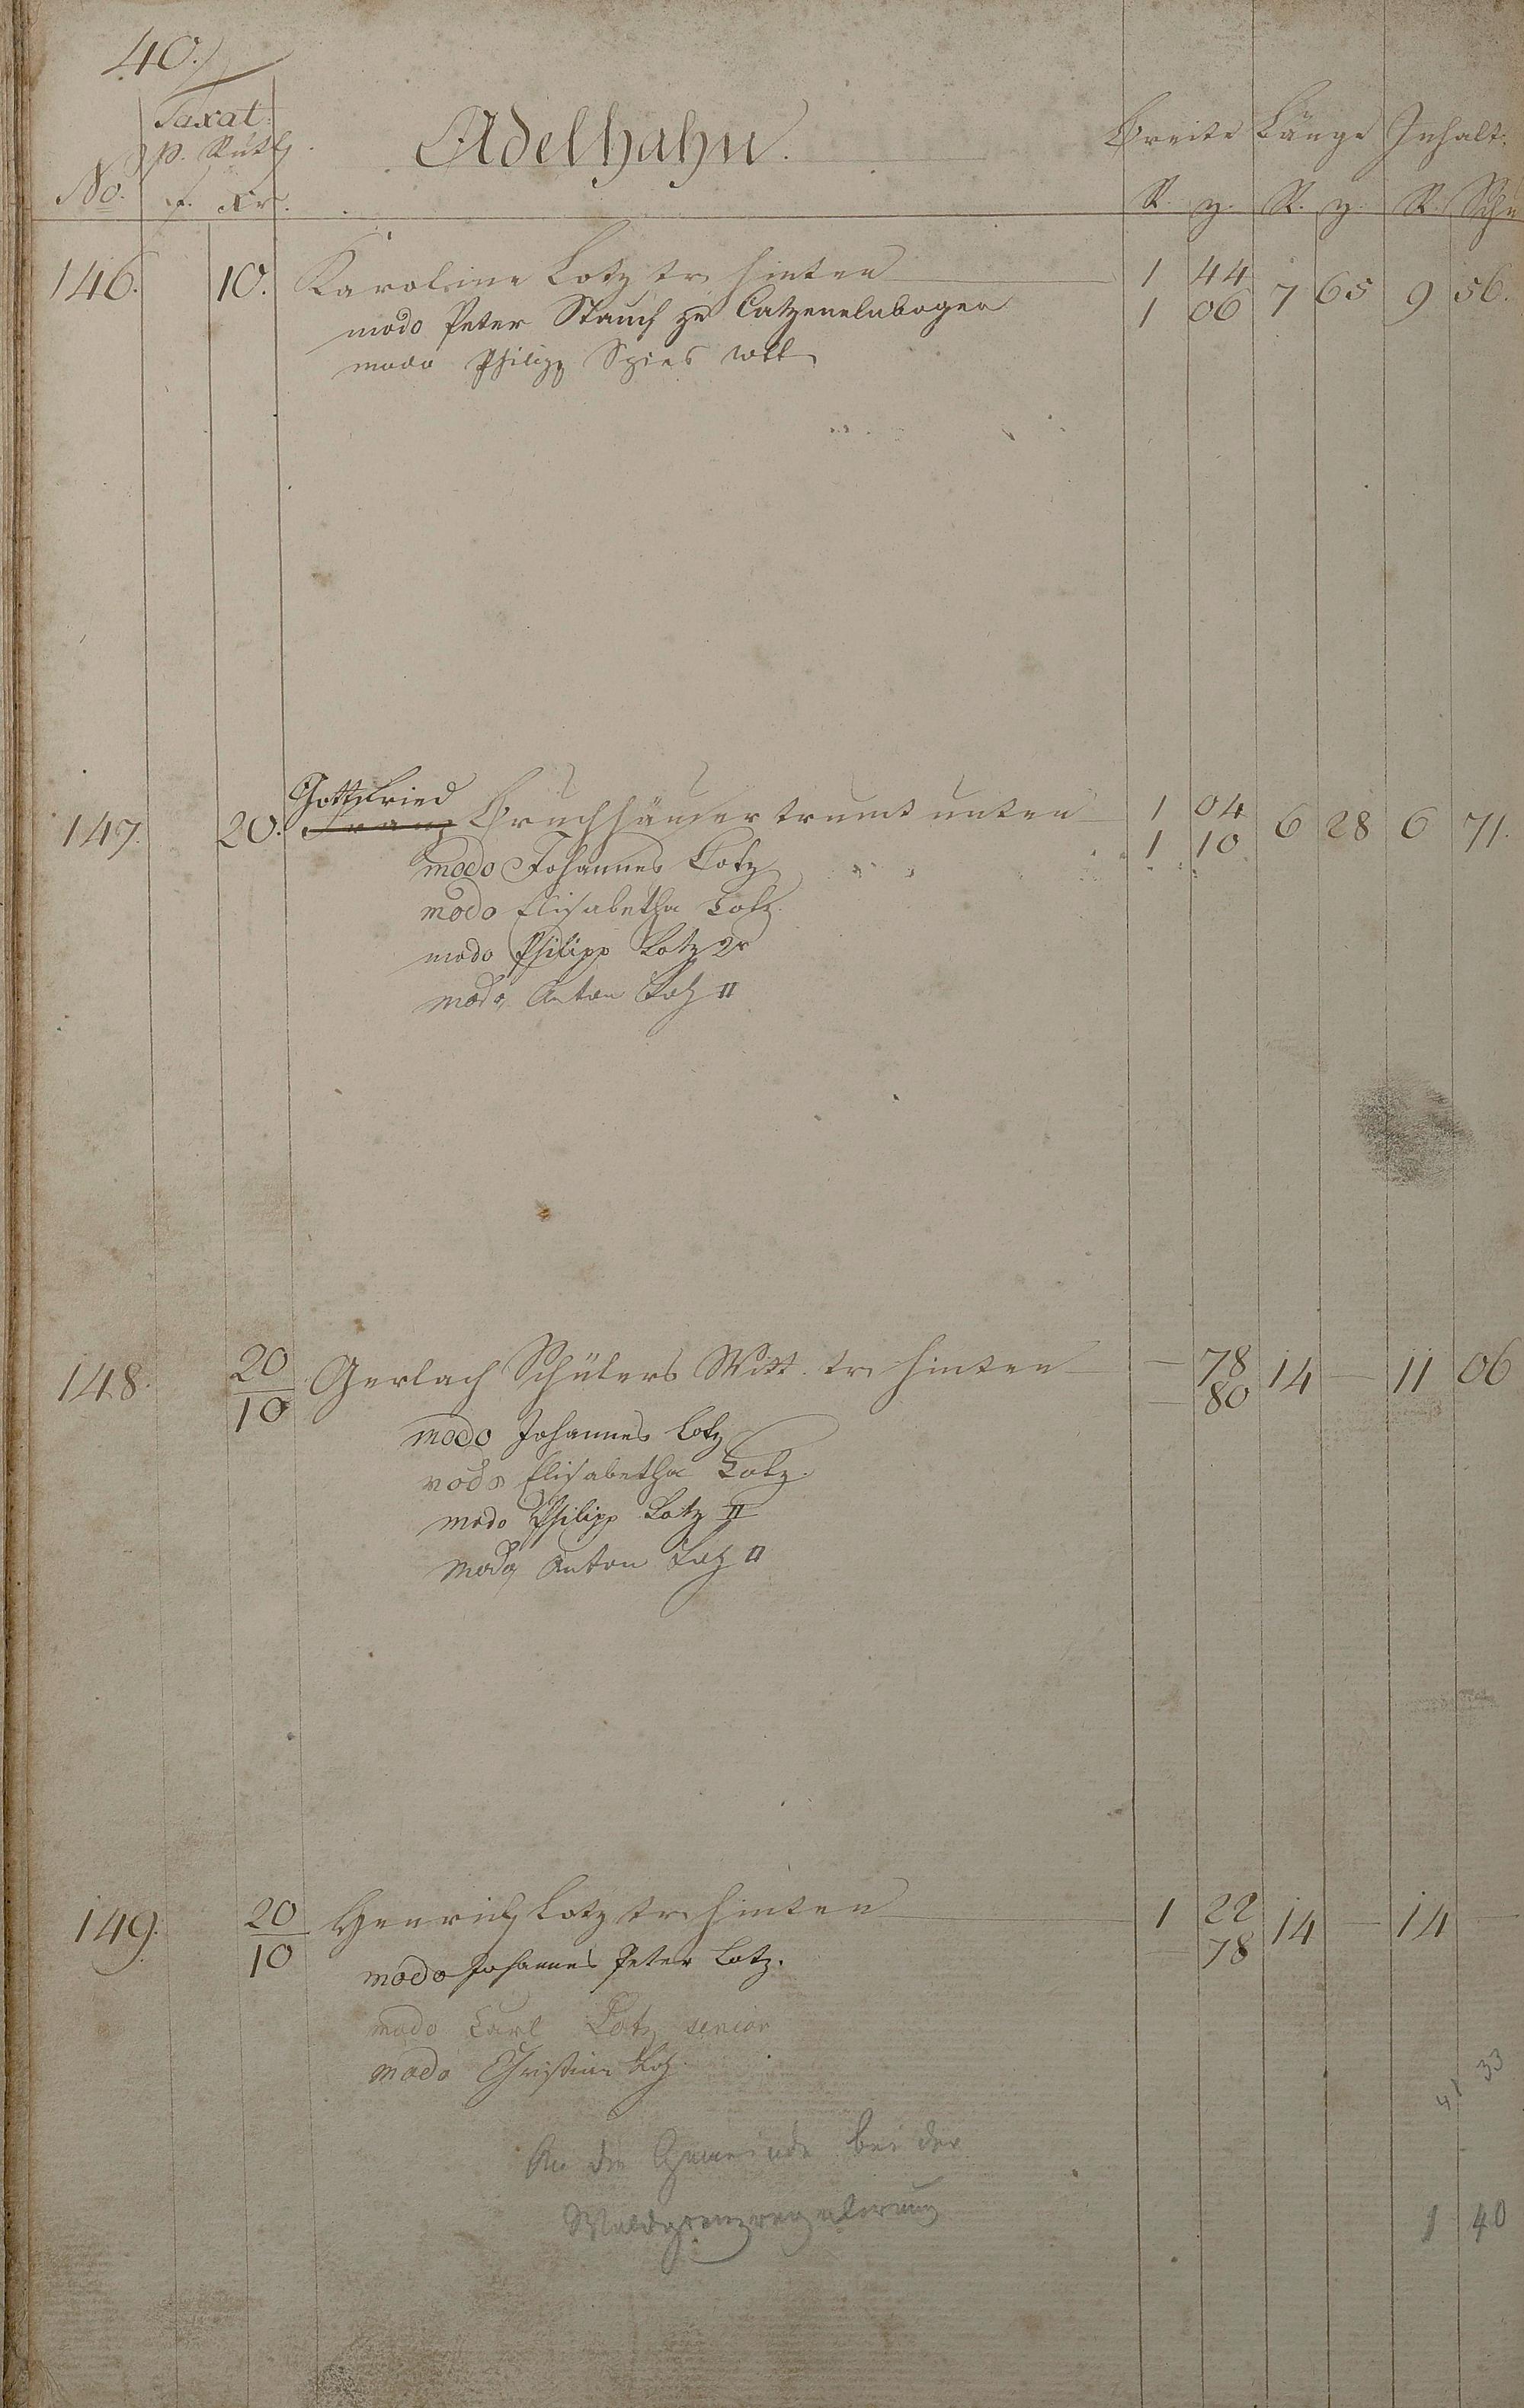 40.
Taxat.
p. Ruth.
No. f. Xr.
Adelhahn.
Breite Länge Inhalt.
R. z. R. z. R. Schu
146. 10. Karoline Lotz tr. hinten 1 44 7 65 9 56.
1 06
modo Peter Stauch zu Catzenelnbogen
modo Philipp Spies
Gottfried
147. 20. Franz Bruchhäuser trumt unten 1 04 6 28 6 71.
1 10
modo Johannes Lotz
modo Elisabetha Lotz.
modo Philipp Lotz 2r
modo Anton Lotz II
148. 20 Gerlach Schülers Witt. tr. hinten — 78 14 — 11 06
10 — 80
modo Johannes Lotz
modo Elisabetha Lotz.
modo Philipp Lotz II
modo Anton Lotz II
149. 20 Henrich Lotz tr. hinten 1 22 14 — 14 —
10 — 78
modo Johannes Peter Lotz.
modo Carl Lotz senior
modo Christian Lotz.
41 33
An die Gemeinde bei der
Waldgrenzregulirung 1 40